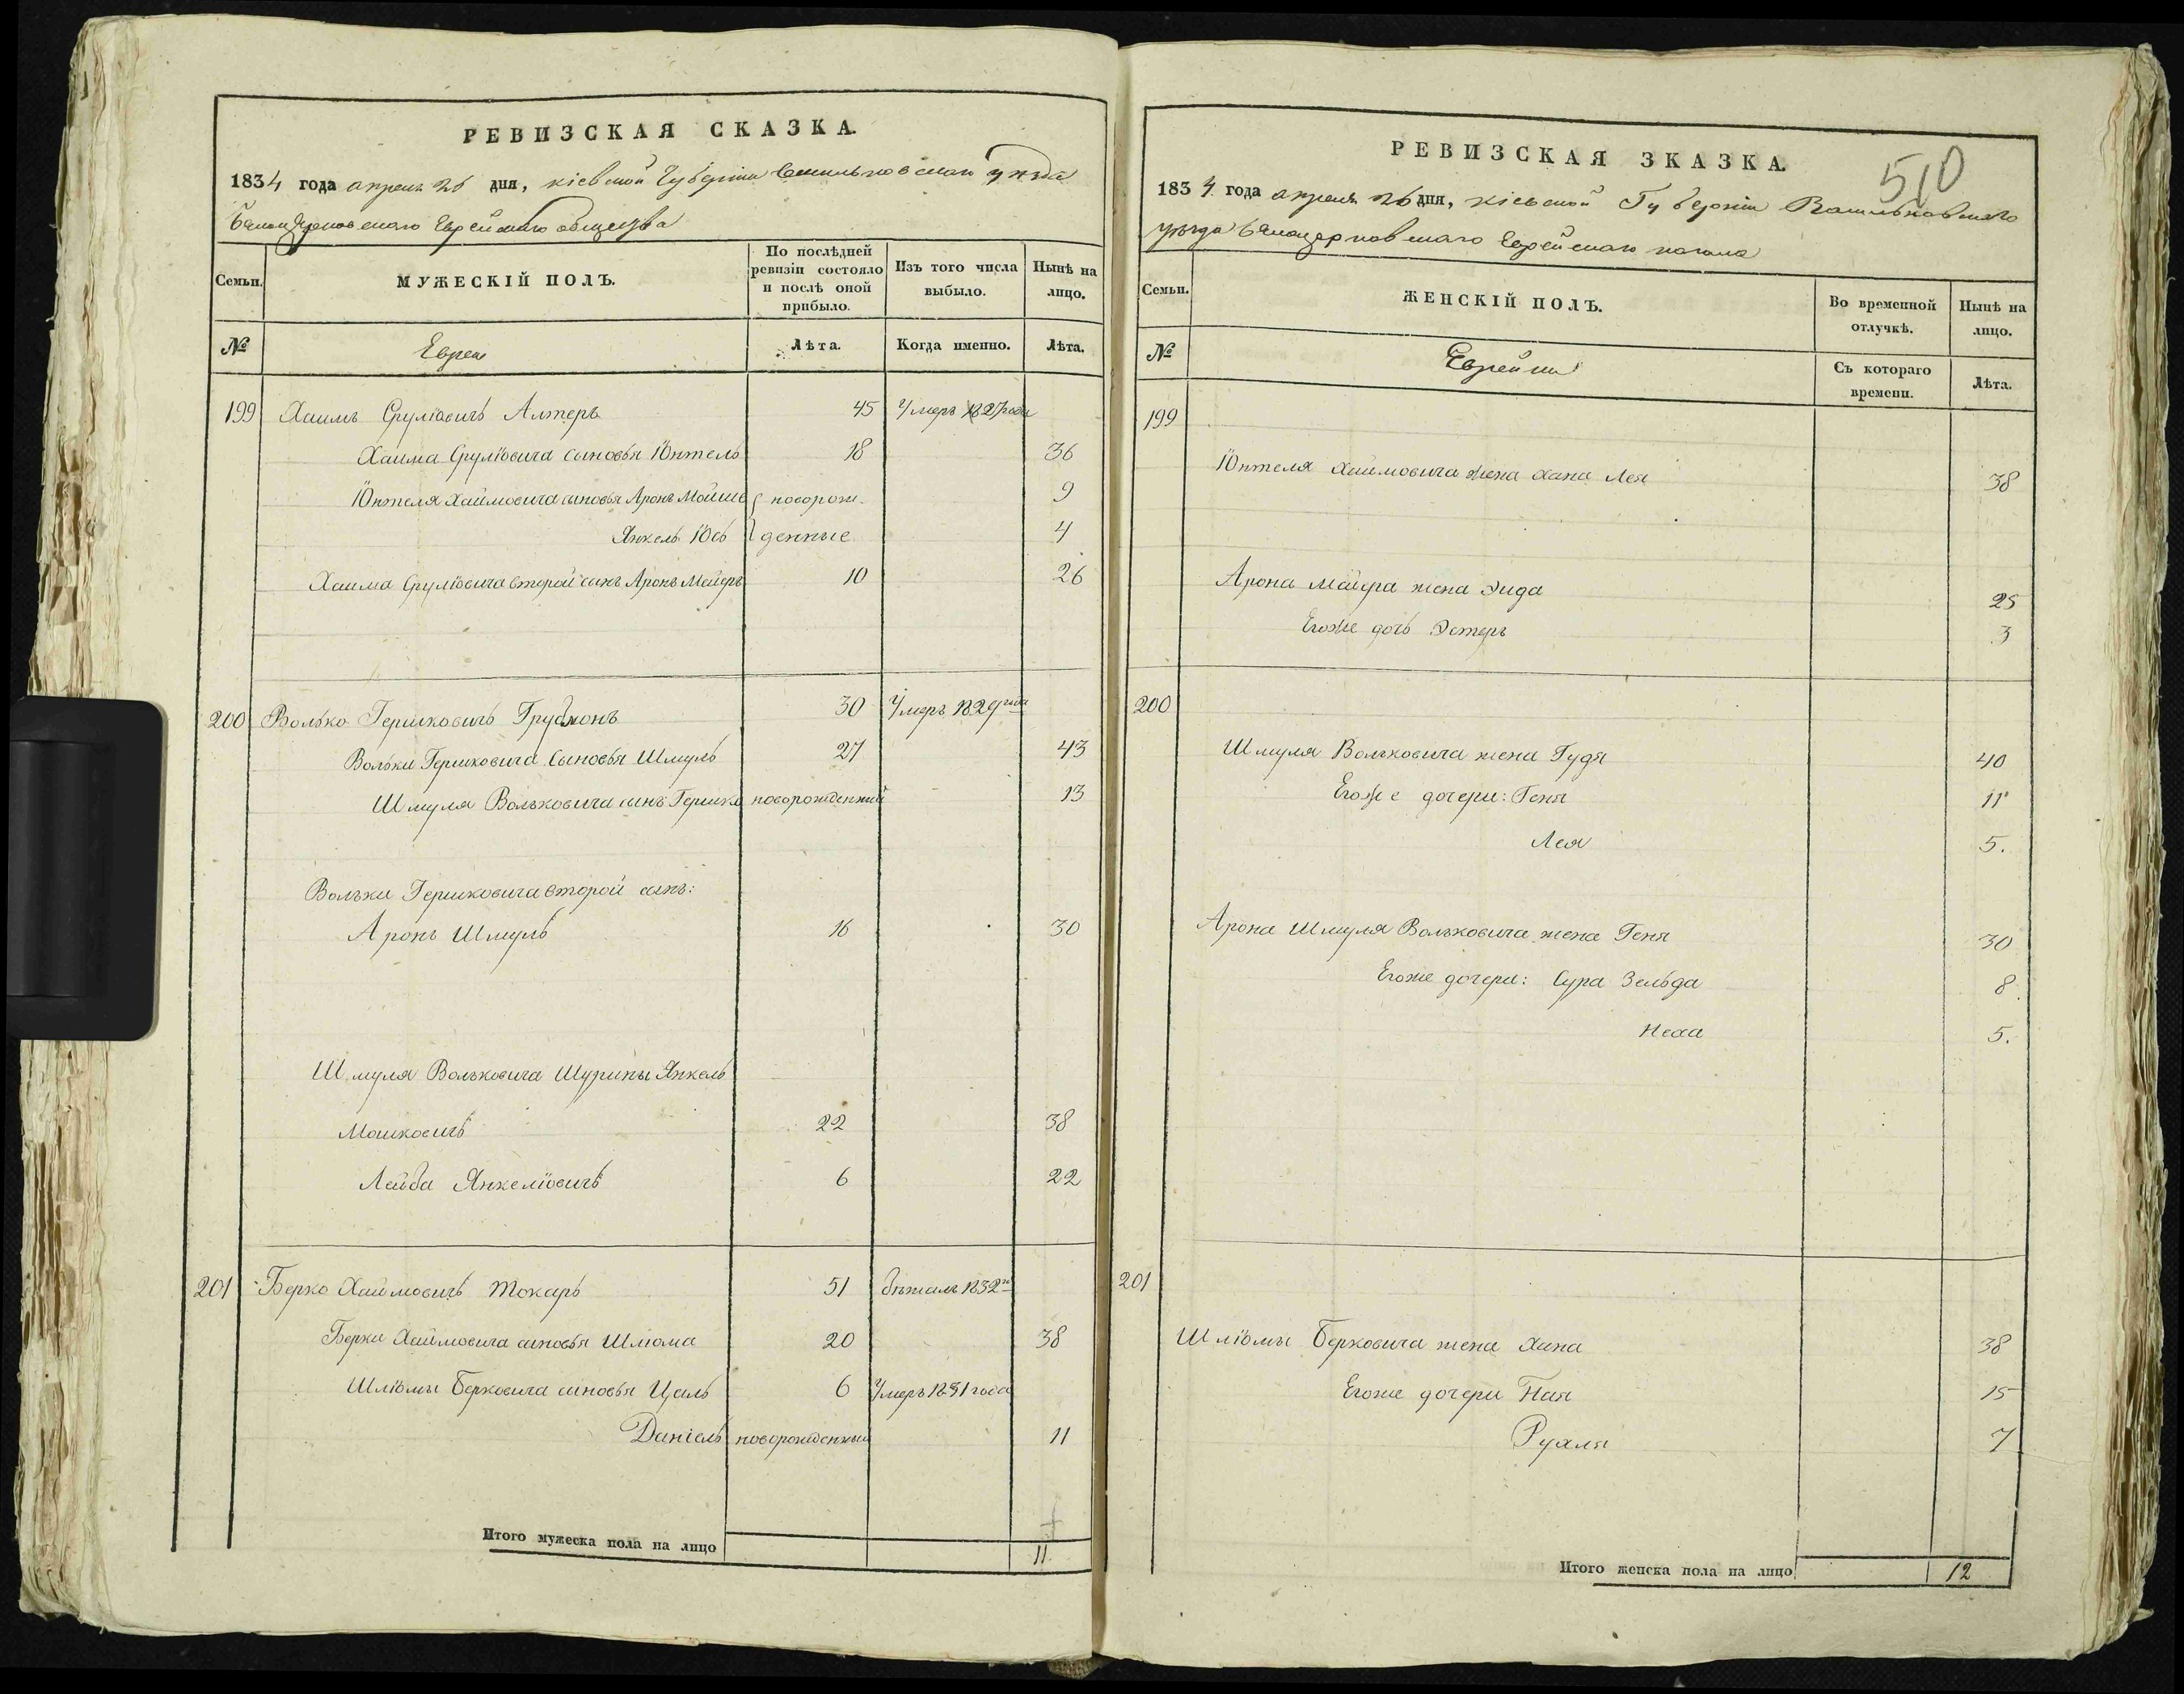 РЕВИЗСКАЯ СКАЗКА.
1834 года апреля 26 дня, кіевской Губерніи Васильковскаго уѣзда
Бѣлоцерковскаго Еврейскаго общества
Семьи.
МУЖЕСКІЙ ПОЛЪ.
По послѣдней ревизіи состояло и послѣ оной прибыло.
Изъ того числа выбыло.
Нынѣ на лицо.
№
Евреи
Лѣта.
Когда именно.
Лѣта.
199 Хаимъ Сруліовичъ Алтеръ 45 Умеръ 1827 года
Хаима Сруліовича сыновья Іонтель 18 36
Іонтеля Хаймовича сыновья Аронъ Мойше новорож- 9
Янкель Іось денные 4
Хаима Сруліовича второй сынъ Аронъ Мейеръ 10 26
200 Волько Гершковичъ Трубмонъ 30 Умеръ 1829 года
Вольки Гершковича Сыновья Шмуль 27 43
Шмуля Вольковича сынъ Гершко новорожденный 13
Вольки Гершковича второй сынъ:
Аронъ Шмуль 16 30
Шмуля Вольковича Шурины Янкель
Мошковичъ 22 38
Лейба Янкеліовичъ 6 22
201 Берко Хаймовичъ Токарь 51 бѣжалъ 1832 го
Берки Хаймовича сыновья Шлюма 20 38
Шліомы Берковича сыновья Цаль 6 Умеръ 1831 года
Даніель новорожденный 11
Итого мужеска пола на лицо 11.
РЕВИЗСКАЯ ЗКАЗКА.
510
1834 года апреля 26 дня, кіевской Губерніи Васильковскаго
уѣзда Бѣлоцерковскаго Еврейскаго кагала
Семьи.
ЖЕНСКІЙ ПОЛЪ.
Во временной отлучкѣ.
Нынѣ на лицо.
№
Еврейки
Съ котораго времени.
Лѣта.
199
Іонтеля Хаймовича жена Хана Лея 38
Арона Майера жена Эйда 25
Егоже дочь Эстеръ 3
200
Шмуля Вольковича жена Гудя 40
Егоже дочери: Геня 11
Лея 5.
Арона Шмуля Вольковича жена Геня 30
Егоже дочери: Сура Зельда 8.
Неха 5.
201
Шліомы Берковича жена Хана 38
Егоже дочери Ная 15
Рухля 7
Итого женска пола на лицо 12